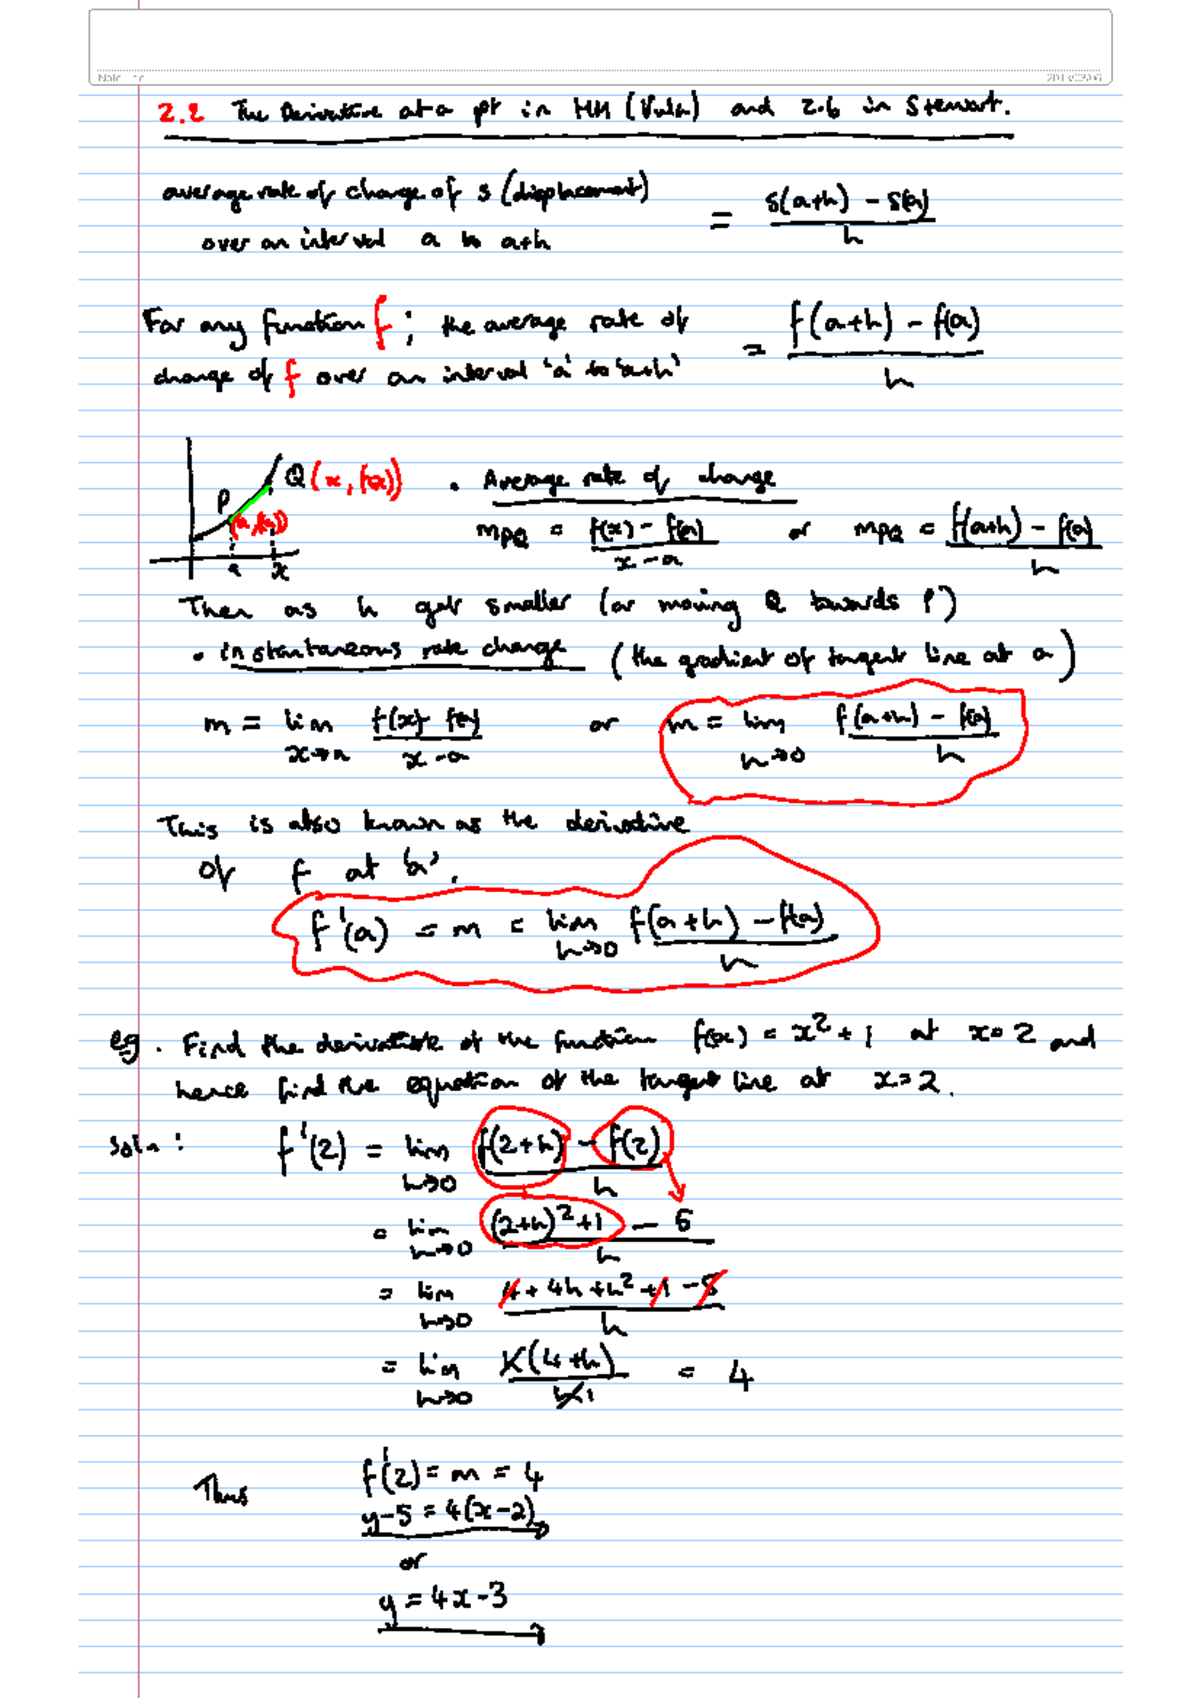 2.2 The Derivative at a pt in HH (Vula) and 2.6 in Stewart.
average rate of change of s (displacement)
over an interval a to a+h
= s(a+h) - s(a) / h
For any function f; the average rate of
change of f over an interval 'a' to 'a+h'
= f(a+h) - f(a) / h
P Q (x, f(x))
(a, f(a))
a x
• Average rate of change
mPQ = f(x) - f(a) / x - a or mPQ = f(a+h) - f(a) / h
Then as h gets smaller (or moving Q towards P)
• instantaneous rate change (the gradient of tangent line at a)
m = lim x→a f(x) - f(a) / x - a or m = lim h→0 f(a+h) - f(a) / h
This is also known as the derivative
of f at 'a'.
f'(a) = m = lim h→0 f(a+h) - f(a) / h
eg. Find the derivative of the function f(x) = x² + 1 at x = 2 and
hence find the equation of the tangent line at x = 2.
Soln: f'(2) = lim h→0 f(2+h) - f(2) / h
= lim h→0 (2+h)² + 1 - 5 / h
= lim h→0 4 + 4h + h² + 1 - 5 / h
= lim h→0 h(4+h) / h 1 = 4
Thus f'(2) = m = 4
y - 5 = 4(x - 2)
or
y = 4x - 3